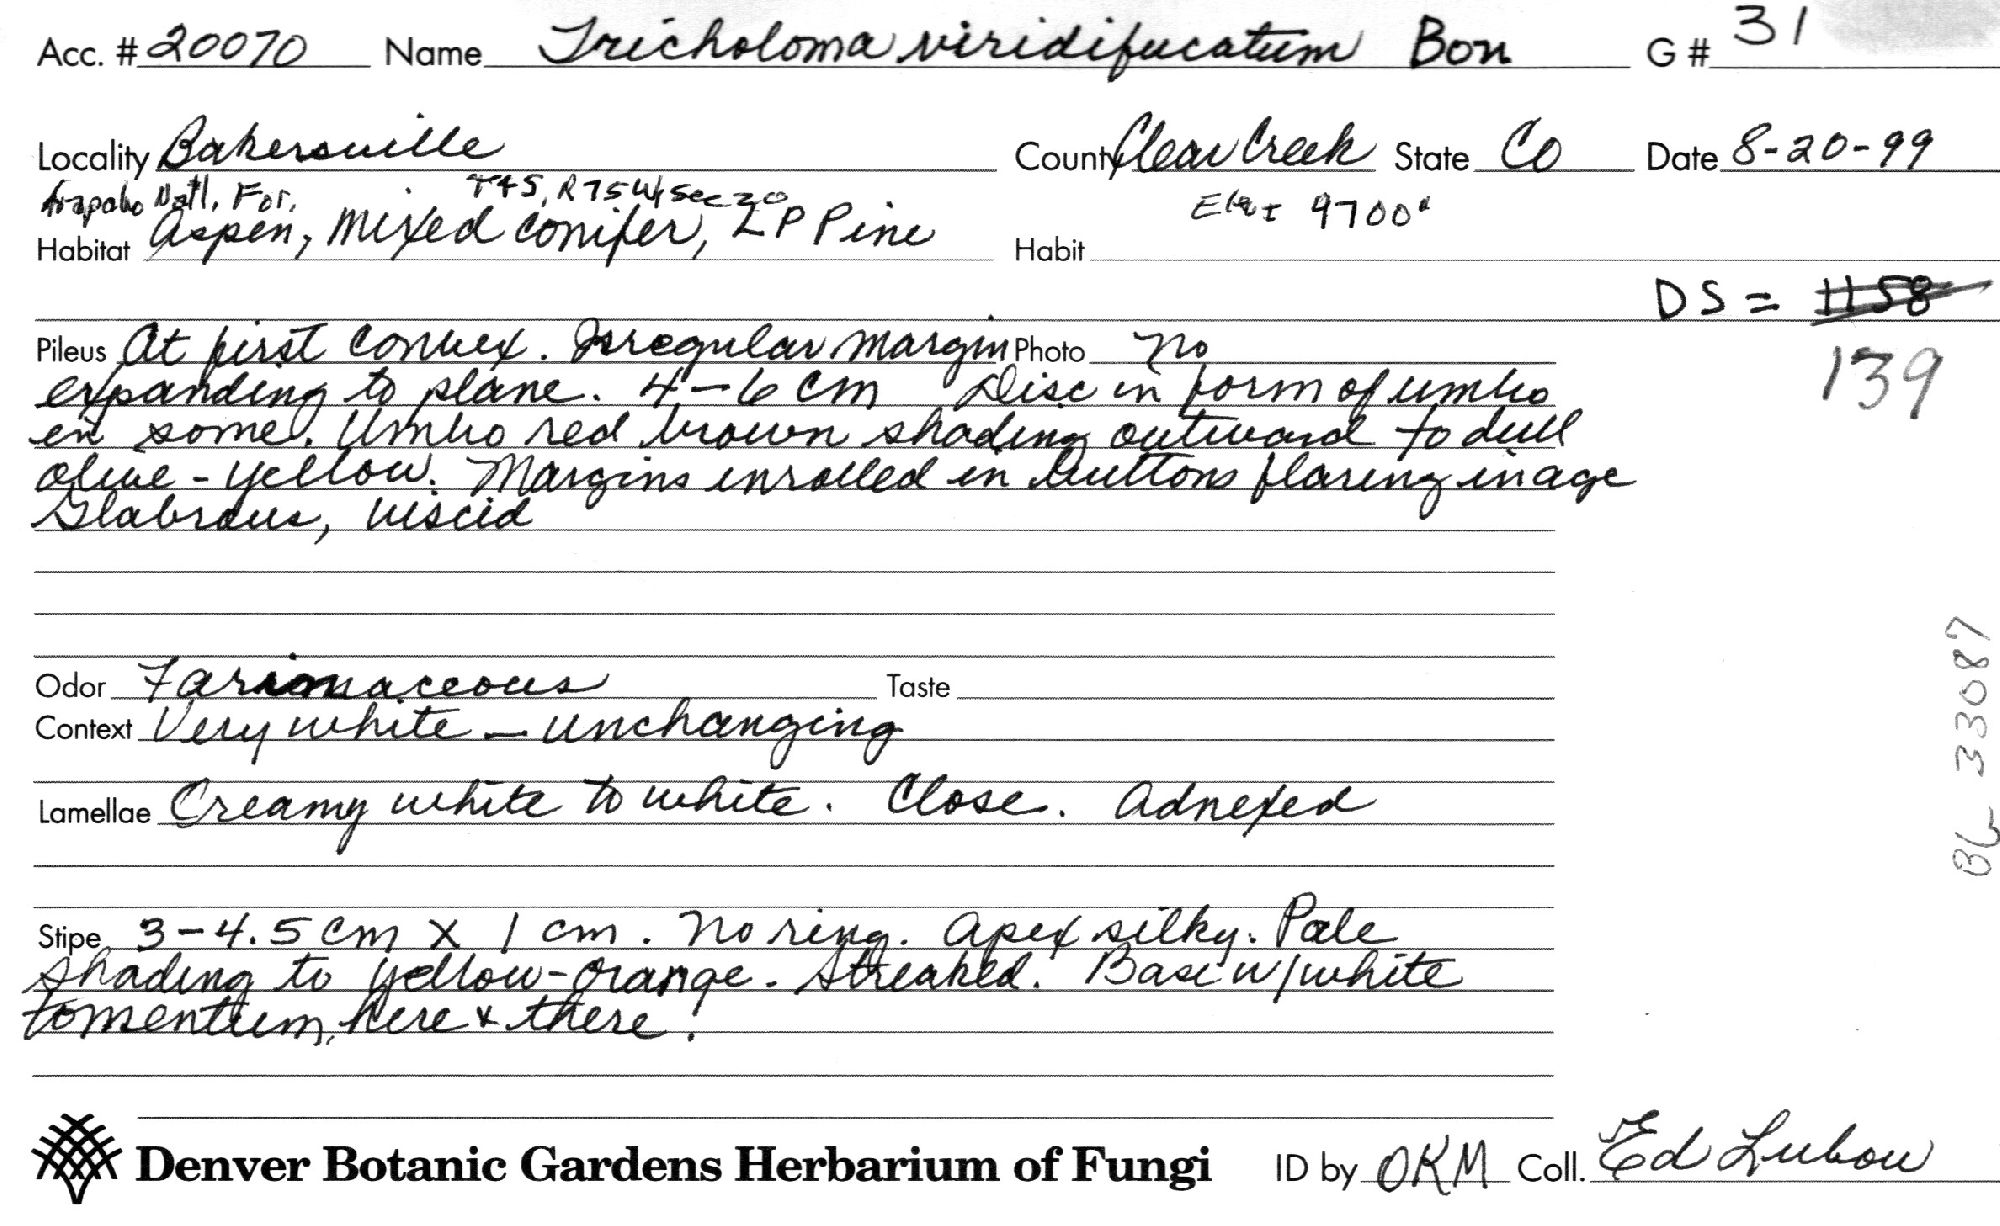 Acc. # 20070 Name Tricholoma viridifucatum Bon G # 31
Locality Bakersville County Clear Creek State CO Date 8-20-99
Arapaho Natl. For. T4S, R75W, Sec 20 Elev 9700'
Habitat Aspen, mixed conifer, LP Pine Habit
DS = 1158
Pileus At first convex. Irregular margin Photo No
139
expanding to plane. 4-6 cm Disc in form of umbo
in some. Umbo red brown shading outward to dull
olive-yellow. Margins enrolled in buttons flaring in age
Glabrous, viscid
Odor Farinaceous Taste
Context Very white - unchanging
Lamellae Creamy white to white. Close. Adnexed
Stipe 3-4.5 cm X 1 cm. No ring. Apex silky. Pale
shading to yellow-orange. Streaked. Base w/white
tomentum, here & there.
33087
Denver Botanic Gardens Herbarium of Fungi ID by OKM Coll. Ed Lubow